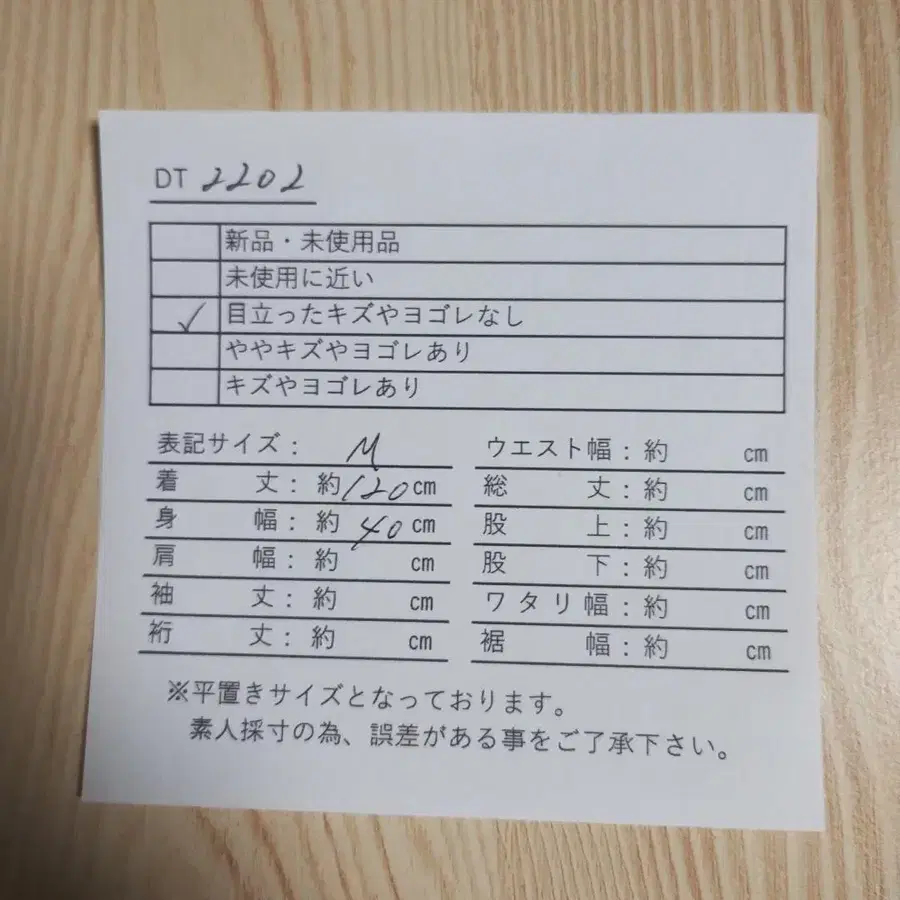 DT 2202
新品・未使用品
未使用に近い
✓ 目立ったキズやヨゴレなし
ややキズやヨゴレあり
キズやヨゴレあり
表記サイズ： M
着丈：約120cm
身幅：約40cm
肩幅：約 cm
袖丈：約 cm
裄丈：約 cm
ウエスト幅：約 cm
総丈：約 cm
股上：約 cm
股下：約 cm
ワタリ幅：約 cm
裾幅：約 cm
※平置きサイズとなっております。
素人採寸の為、誤差がある事をご了承下さい。